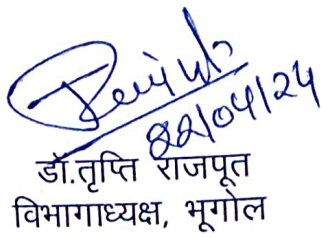 22/04/24
डॉ.तृप्ति राजपूत
विभागाध्यक्ष, भूगोल